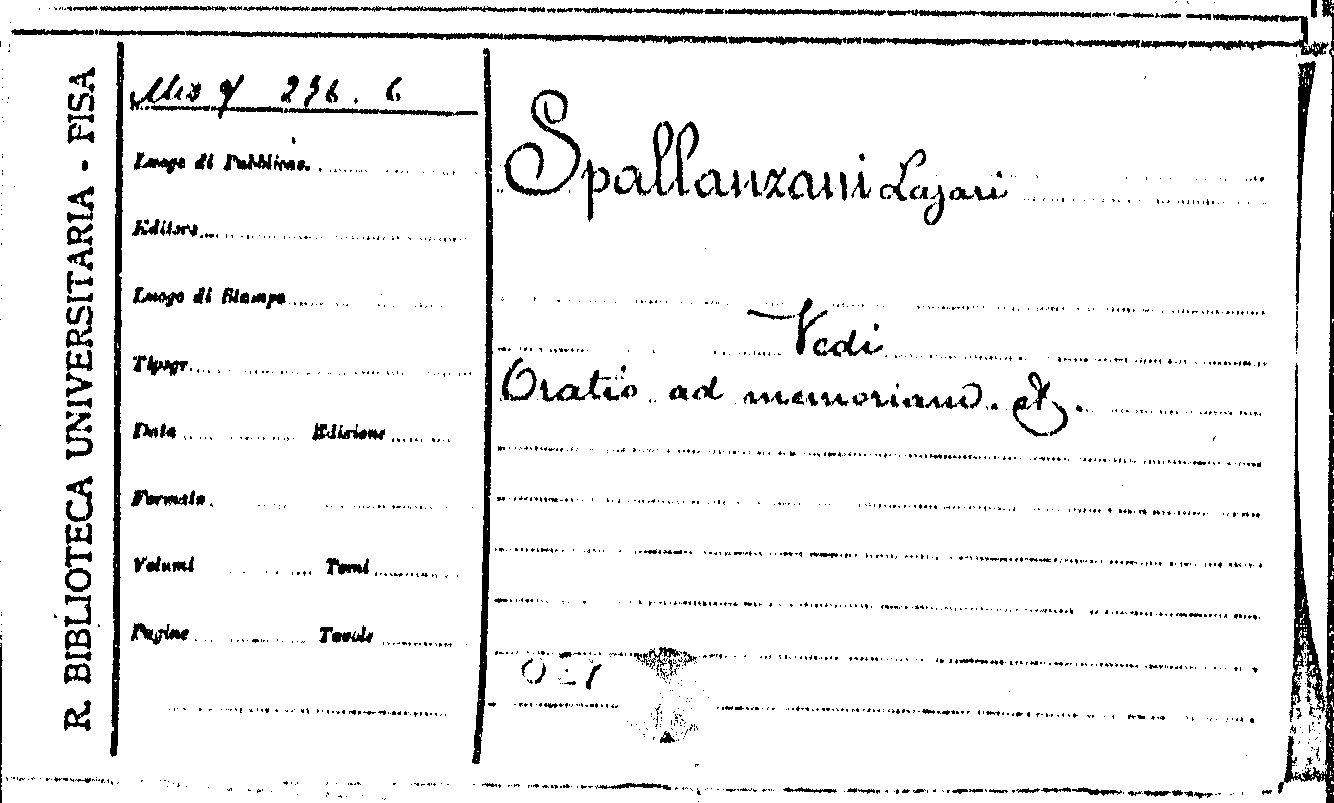 R. BIBLIOTECA UNIVERSITARIA - PISA
236. 6
Luogo di Pubblicaz.
Editore
Luogo di Stampa
Tipogr.
Data Edizione
Formato
Volumi Tomi
Pagine Tavole
Spallanzani Lazari
Vedi
Oratio ad memoriam. etc.